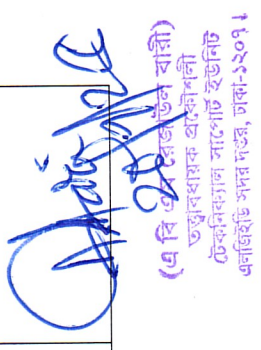 (এ বি এম রেজাউল বারী)
তত্ত্বাবধায়ক প্রকৌশলী
টেকনিক্যাল সাপোর্ট ইউনিট
এলজিইডি সদর দপ্তর, ঢাকা-১২০৭।